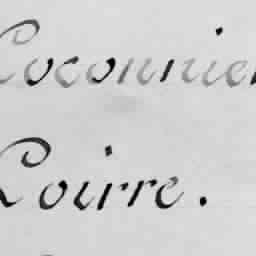 Coconnier
Loirre.